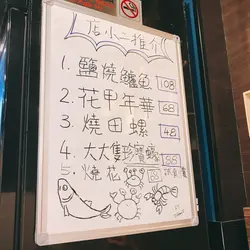 店小二推介
1. 鹽燒鱸魚 108
2. 花甲年華 68
3. 燒田螺 48
4. 大大隻珍寶蠔
5. 燒花